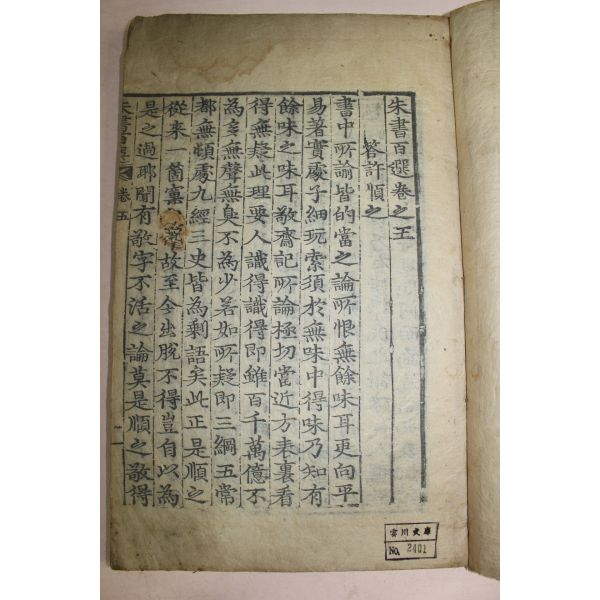 朱書百選卷之五
答許順之
書中所諭皆的當之論所恨無餘味耳更向平
易著實處子細玩索須於無味中得味乃知有
餘味之味耳敬齋記所論極切當近方表裏看
得無疑此理要人識得識得即雖百千萬億不
為多無聲無臭不為少若如所疑即三綱五常
都無頓處九經三史皆為剩語矣此正是順之
從来一箇窠故至全出脫不得豈自以為
是之過耶聞有敬字不活之論莫是順之敬得
朱書百選 卷五
雲川文庫
No. 2401